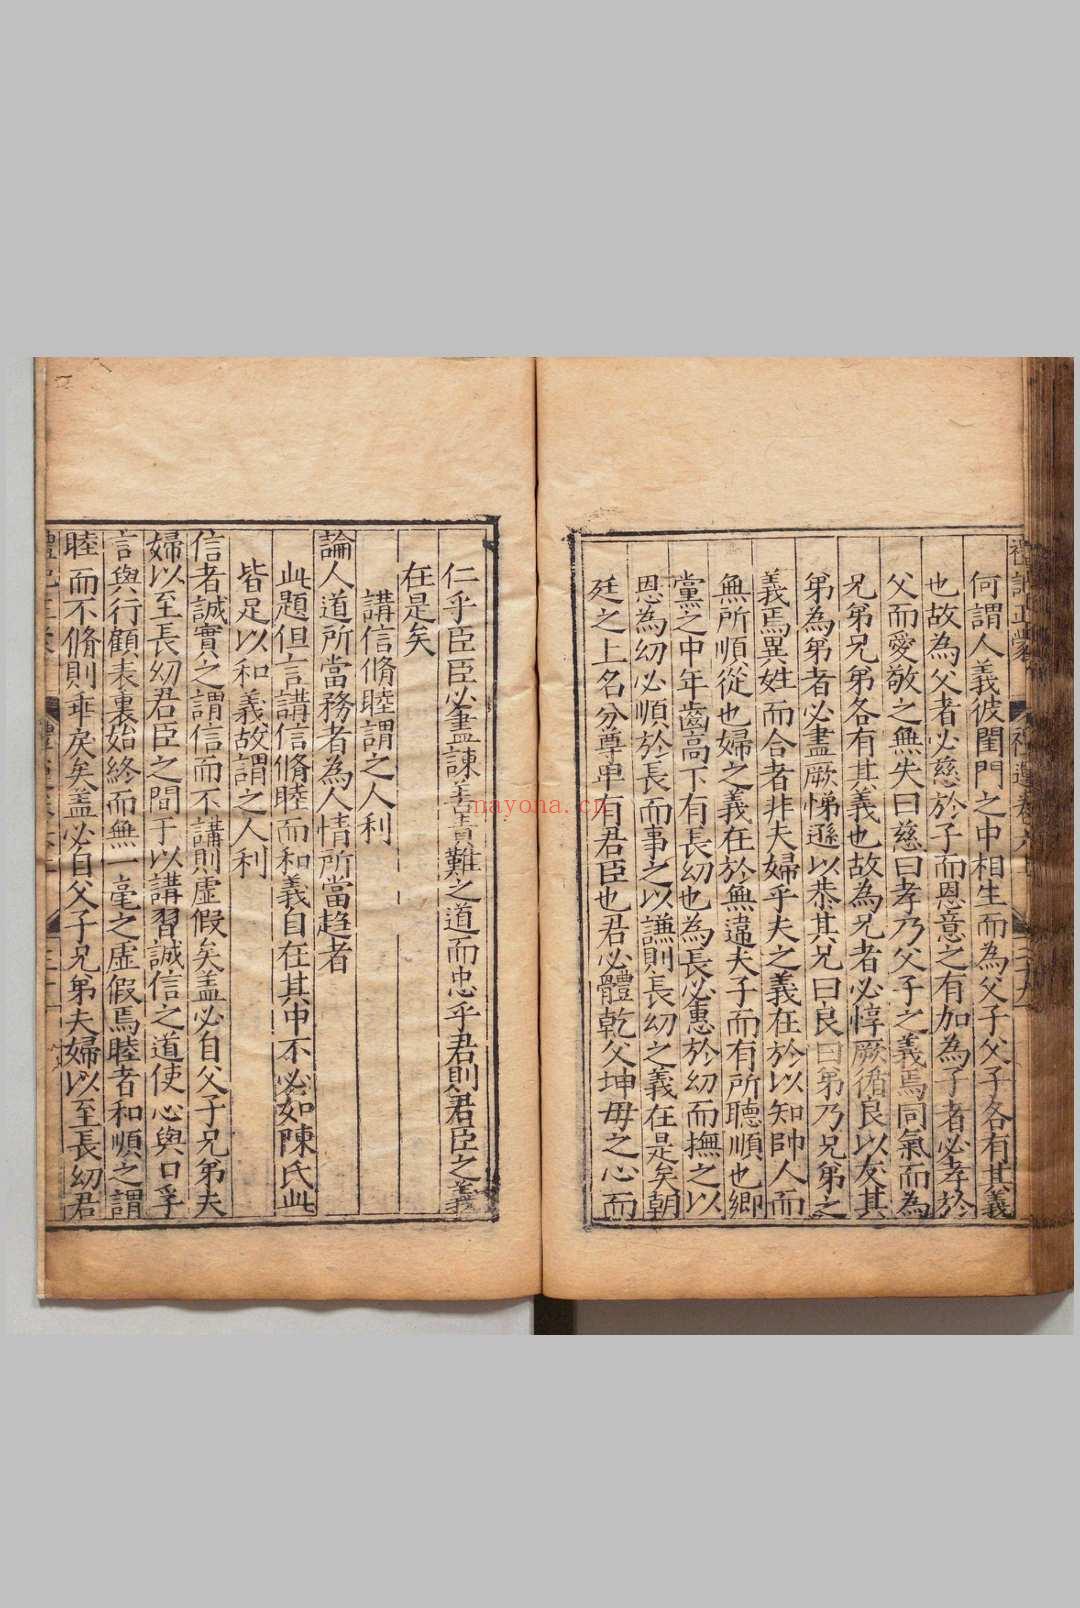 何謂人義彼閨門之中相生而為父子父子各有其義
也故為父者必慈於子而恩意之有加為子者必孝於
父而愛敬之無失曰慈曰孝乃父子之義焉同氣而為
兄弟兄弟各有其義也故為兄者必惇厥循良以友其
弟為弟者必盡厥悌遜以恭其兄曰良曰弟乃兄弟之
義焉異姓而合者非夫婦乎夫之義在於以知帥人而
無所順從也婦之義在於無違夫子而有所聽順也鄉
黨之中年齒高下有長幼也為長必惠於幼而撫之以
恩為幼必順於長而事之以謙則長幼之義在是矣朝
廷之上名分尊卑有君臣也君必體乾父坤母之心而
仁乎臣臣必盡諫善責難之道而忠乎君則君臣之義
在是矣
講信脩睦謂之人利
論人道所當務者為人情所當趋者
此題但言講信脩睦而和義自在其中不必如陳氏此
皆足以和義故謂之人利
信者誠實之謂信而不講則虛假矣盖必自父子兄弟夫
婦以至長幼君臣之間于以講習誠信之道使心與口孚
言與行顧表裏始終而無一毫之虛假焉睦者和順之謂
睦而不脩則乖戾矣盖必自父子兄弟夫婦以至長幼君
nayona.cn